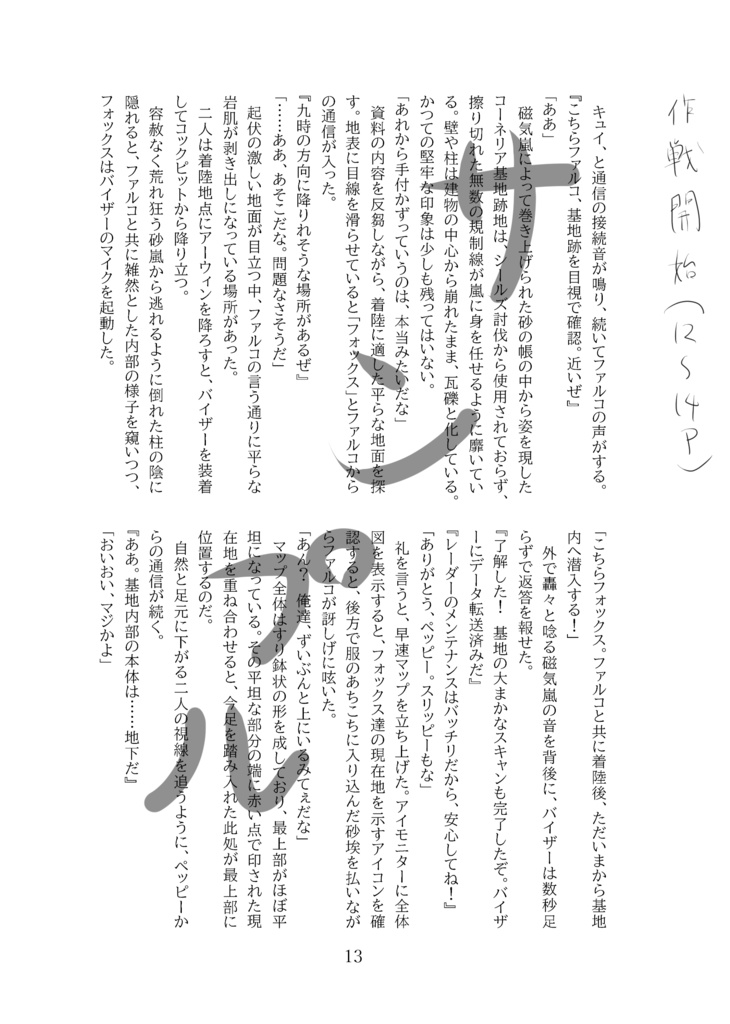 作戦開始(12〜14P)
サンプル
キュイ、と通信の接続音が鳴り、続いてファルコの声がする。
『こちらファルコ、基地跡を目視で確認。近いぜ』
「ああ」
磁気嵐によって巻き上げられた砂の帳の中から姿を現した
コーネリア基地跡地は、シールズ討伐から使用されておらず、
擦り切れた無数の規制線が嵐に身を任せるように靡いてい
る。壁や柱は建物の中心から崩れたまま、瓦礫と化している。
かつての堅牢な印象は少しも残ってはいない。
「あれから手付かずっていうのは、本当みたいだな」
資料の内容を反芻しながら、着陸に適した平らな地面を探
す。地表に目線を滑らせていると「フォックス」とファルコから
の通信が入った。
『九時の方向に降りれそうな場所があるぜ』
「……ああ、あそこだな。問題なさそうだ」
起伏の激しい地面が目立つ中、ファルコの言う通りに平らな
岩肌が剥き出しになっている場所があった。
二人は着陸地点にアーウィンを降ろすと、バイザーを装着
してコックピットから降り立つ。
容赦なく荒れ狂う砂嵐から逃れるように倒れた柱の陰に
隠れると、ファルコと共に雑然とした内部の様子を窺いつつ、
フォックスはバイザーのマイクを起動した。
「こちらフォックス。ファルコと共に着陸後、ただいまから基地
内へ潜入する!」
外で轟々と唸る磁気嵐の音を背後に、バイザーは数秒足
らずで返答を報せた。
『了解した! 基地の大まかなスキャンも完了したぞ。バイザ
ーにデータ転送済みだ』
『レーダーのメンテナンスはバッチリだから、安心してね!』
「ありがとう、ペッピー。スリッピーもな」
礼を言うと、早速マップを立ち上げた。アイモニターに全体
図を表示すると、フォックス達の現在地を示すアイコンを確
認すると、後方で服のあちこちに入り込んだ砂埃を払いなが
らファルコが訝しげに呟いた。
「あん? 俺達、ずいぶんと上にいるみてぇだな」
マップ全体はすり鉢状の形を成しており、最上部がほぼ平
坦になっている。その平坦な部分の端に赤い点で印された現
在地を重ね合わせると、今足を踏み入れた此処が最上部に
位置するのだ。
自然と足元に下がる二人の視線を追うように、ペッピーか
らの通信が続く。
『ああ。基地内部の本体は……地下だ』
「おいおい、マジかよ」
13